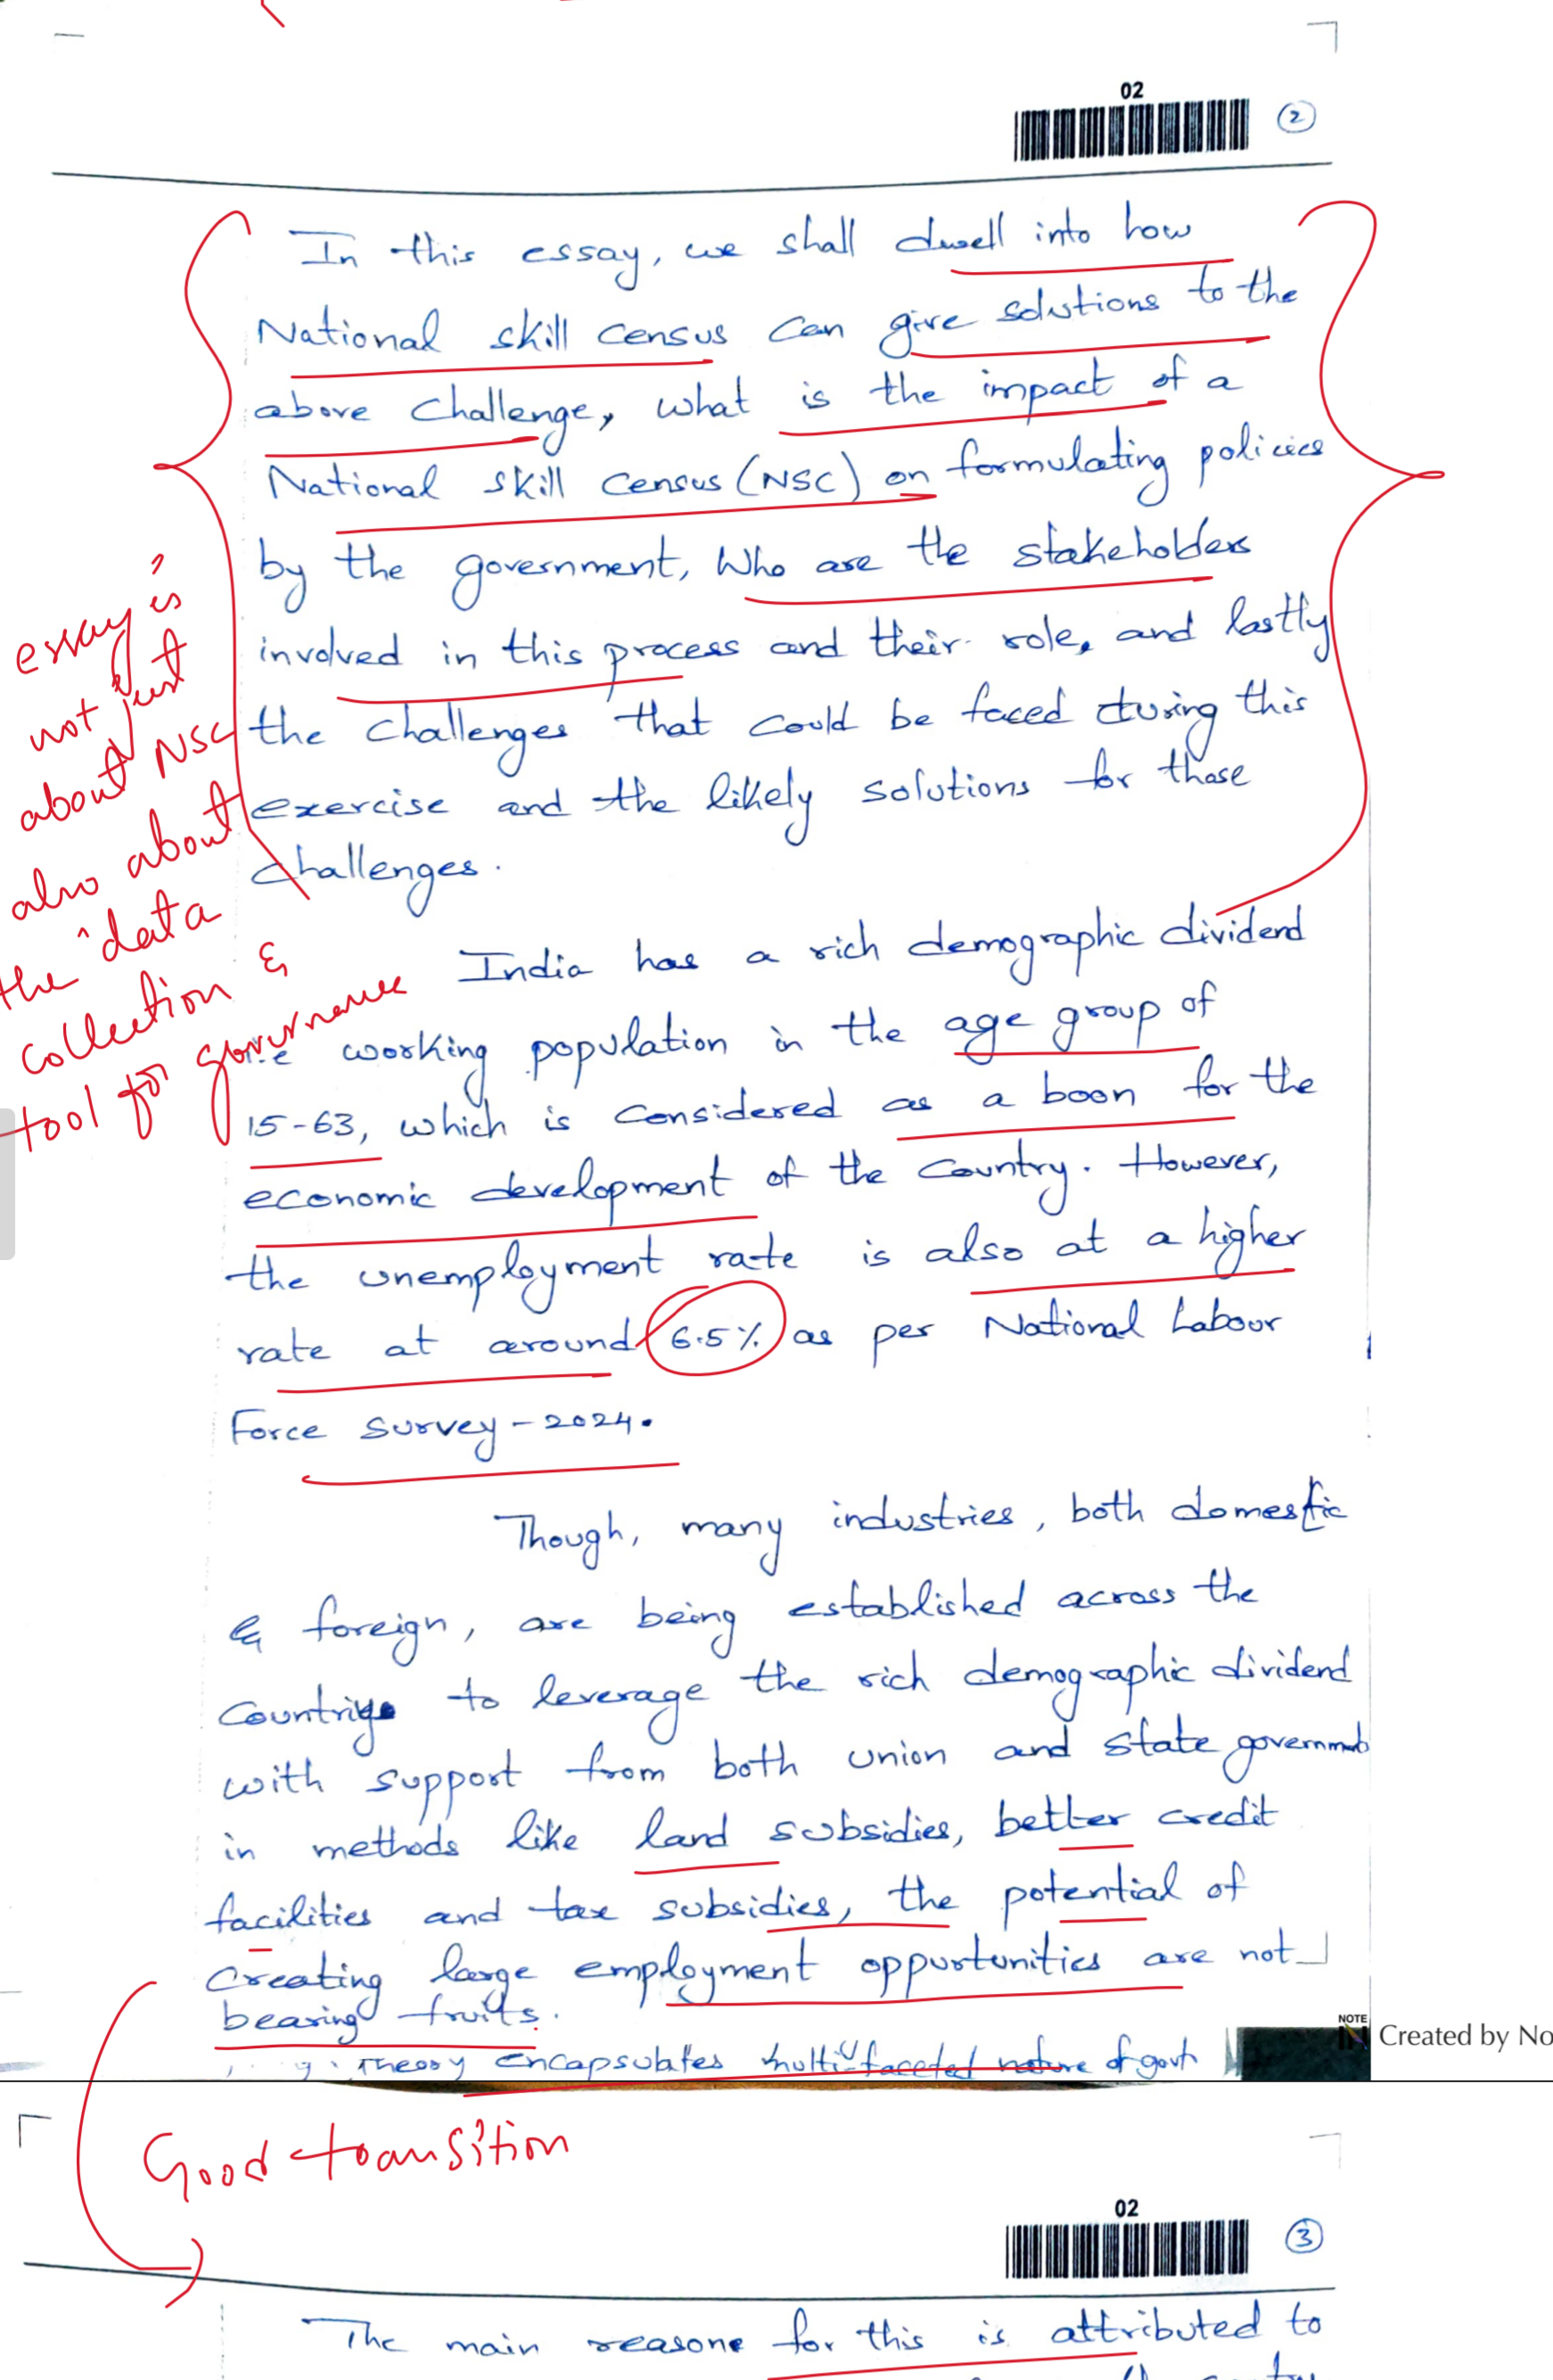 02
2
In this essay, we shall dwell into how
National skill census can give solutions to the
above challenge, what is the impact of a
National skill Census (NSC) on formulating policies
by the government, Who are the stakeholders
involved in this process and their role, and lastly
the challenges that could be faced during this
exercise and the likely solutions for those
challenges.
essay is
not just
about NSC
also about
the data
collection &
tool for governance
India has a rich demographic dividend
i.e working population in the age group of
15-63, which is considered as a boon for the
economic development of the country. However,
the unemployment rate is also at a higher
rate at around 6.5% as per National Labour
Force Survey-2024.
Though, many industries, both domestic
& foreign, are being established across the
to leverage the rich demographic dividend
with support from both union and state
in methods like land subsidies, better credit
facilities and tax subsidies, the potential of
creating large employment oppurtunities are not
bearing fruits.
Theory encapsulates multi-faceted nature of govt
NOTE
Created by No
Good transition
02
3
The main reasone for this is attributed to